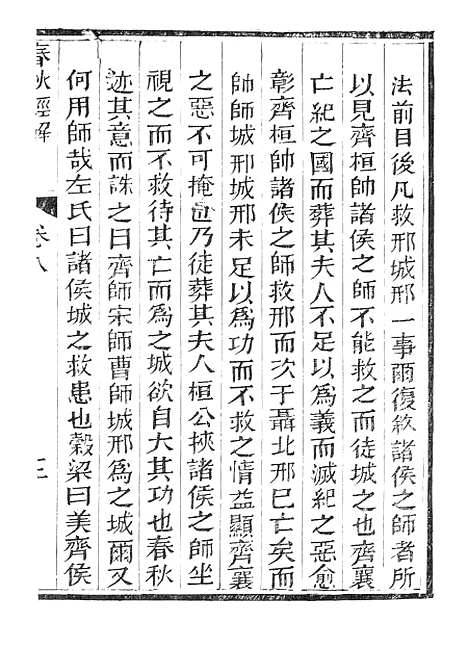 法前目後凡救邢城邢一事爾復敘諸侯之師者所
以見齊桓帥諸侯之師不能救之而徒城之也齊襄
亡紀之國而葬其夫人不足以爲義而滅紀之惡愈
彰齊桓帥諸侯之師救邢而次于聶北邢已亡矣而
帥師城邢城邢未足以爲功而不救之情益顯齊襄
之惡不可掩也乃徒葬其夫人桓公挾諸侯之師坐
視之而不救待其亡而爲之城欲自大其功也春秋
迹其意而誅之曰齊師宋師曹師城邢爲之城爾又
何用師哉左氏曰諸侯城之救患也穀梁曰美齊侯
春秋經解
卷八
三